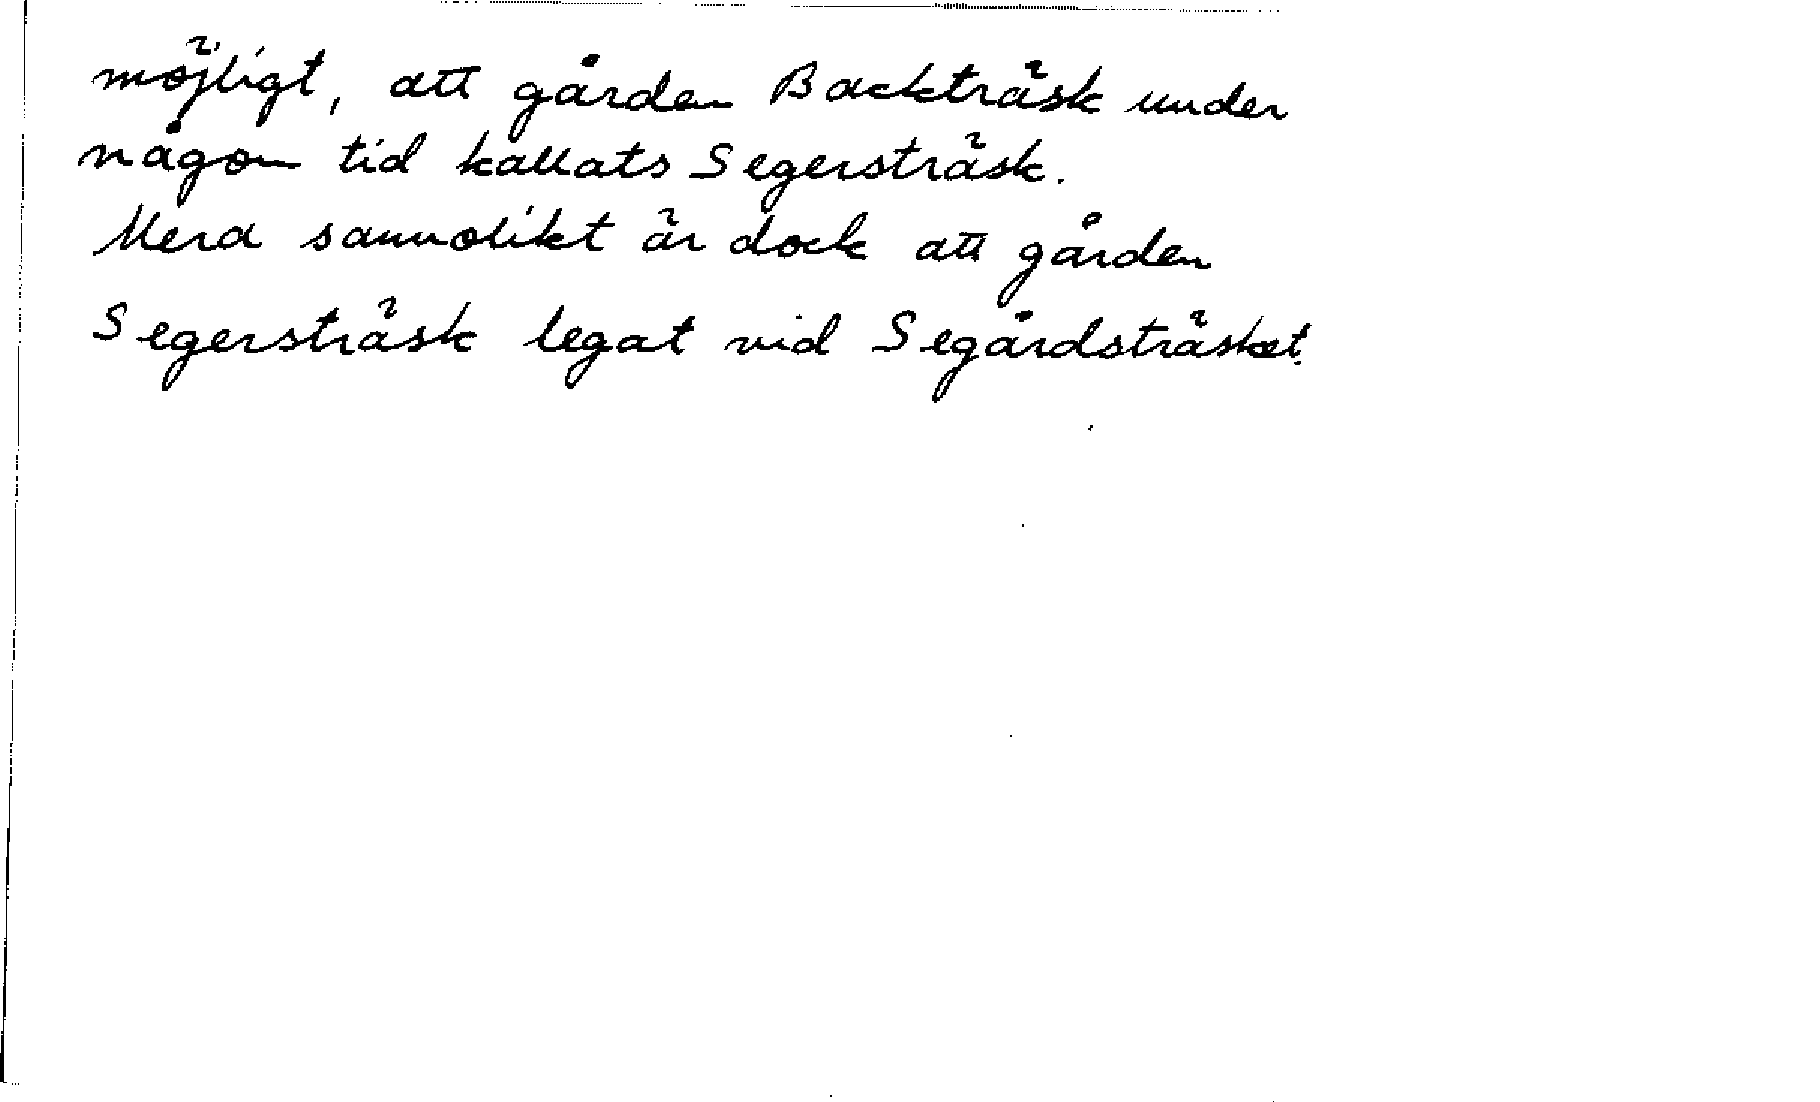 möjligt, att gården Backträsk under
någon tid kallats Segersträsk.
Mera sannolikt är dock att gården
Segersträsk legat vid Segårdsträsket.